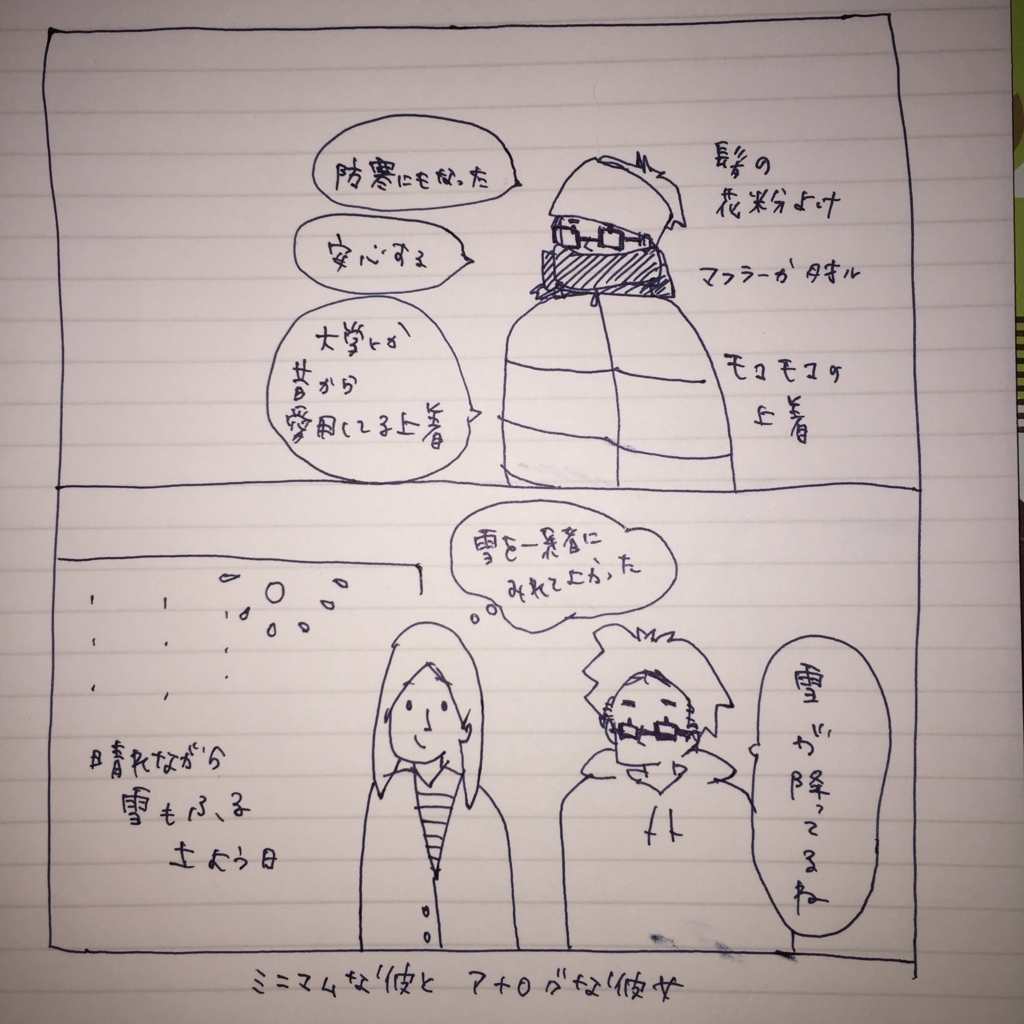 防寒にもなった
安心する
大学とか
昔から
愛用してる上着
髪の
花粉よけ
マフラーかタオル
モコモコの
上着
雪を一緒に
みれてよかった
雪が降ってるね
晴れながら
雪もふる
土よう日
ミニマムな彼と アナログな彼女